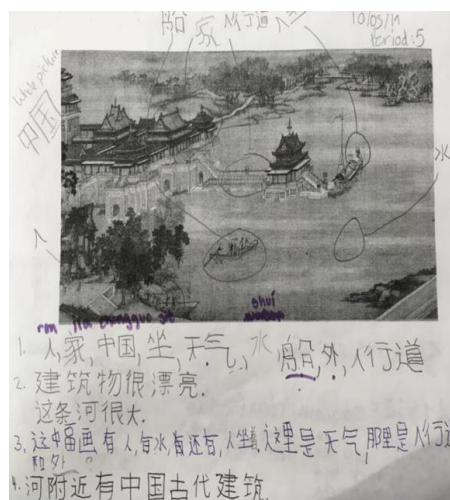 船 家 人行道 人
10/05/17
Period:5
White picture
中国
水
人
ren jia zhongguo
shui
1. 人,家,中国,坐,天气,水,船,外,人行道
2. 建筑物很漂亮.
这条河很大.
3. 这中画有人,有水,有还有,人坐,这里是天气,那里是人行道
和外。
4. 河附近有中国古代建筑.